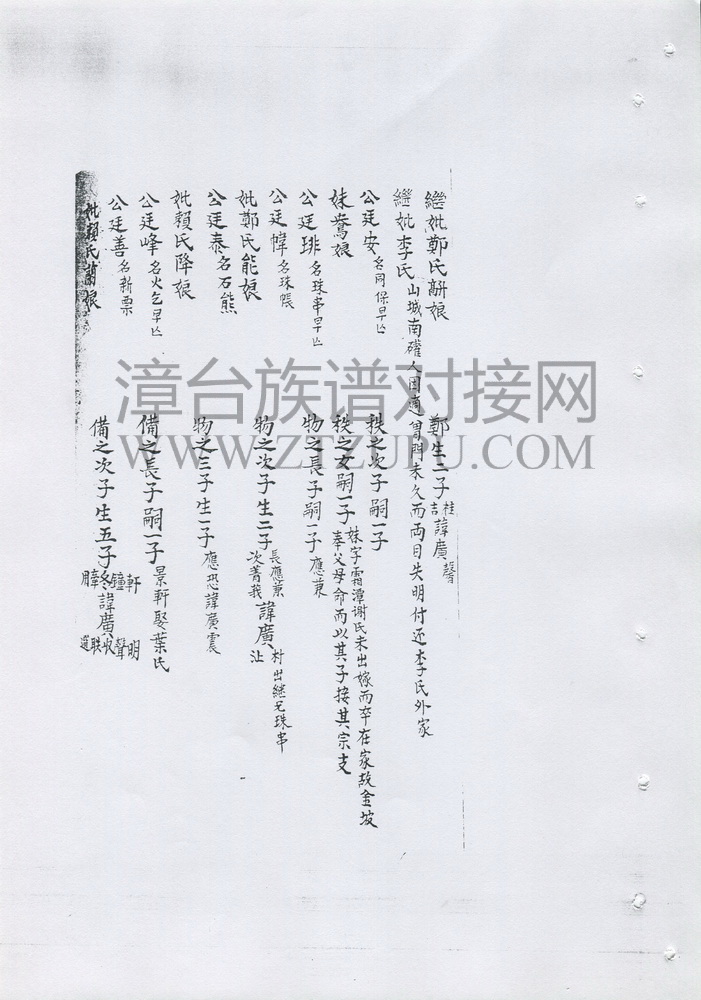 繼妣鄭氏娘 鄭生二子 桂吉 諱廣聲
繼妣李氏 山城南人因適曾門未久而両目失明付还李氏外家
公廷安 名同保早亡 秩之次子嗣一子
妹鴦娘 秩之女嗣一子 妹字霜潭谢氏未出嫁而卒在家故金坡奉父母命而以其子接其宗支
公廷琲 名珠串早亡 物之長子嗣一子 應蒹
公廷幃 名珠賬 物之次子生二子 長應蒹次菁莪 諱廣 村出継兄珠串沚
妣鄭氏能娘
公廷泰 名石熊 物之三子生一子 應恐諱廣震
妣賴氏降娘
公廷峰 名火乞早亡 備之長子嗣一子 景軒娶葉氏
公廷善 名新票 備之次子生五子 軒鐘冬 諱廣 明聲 联
妣賴氏蘭娘
漳台族谱对接网
WWW.ZTZUPU.COM